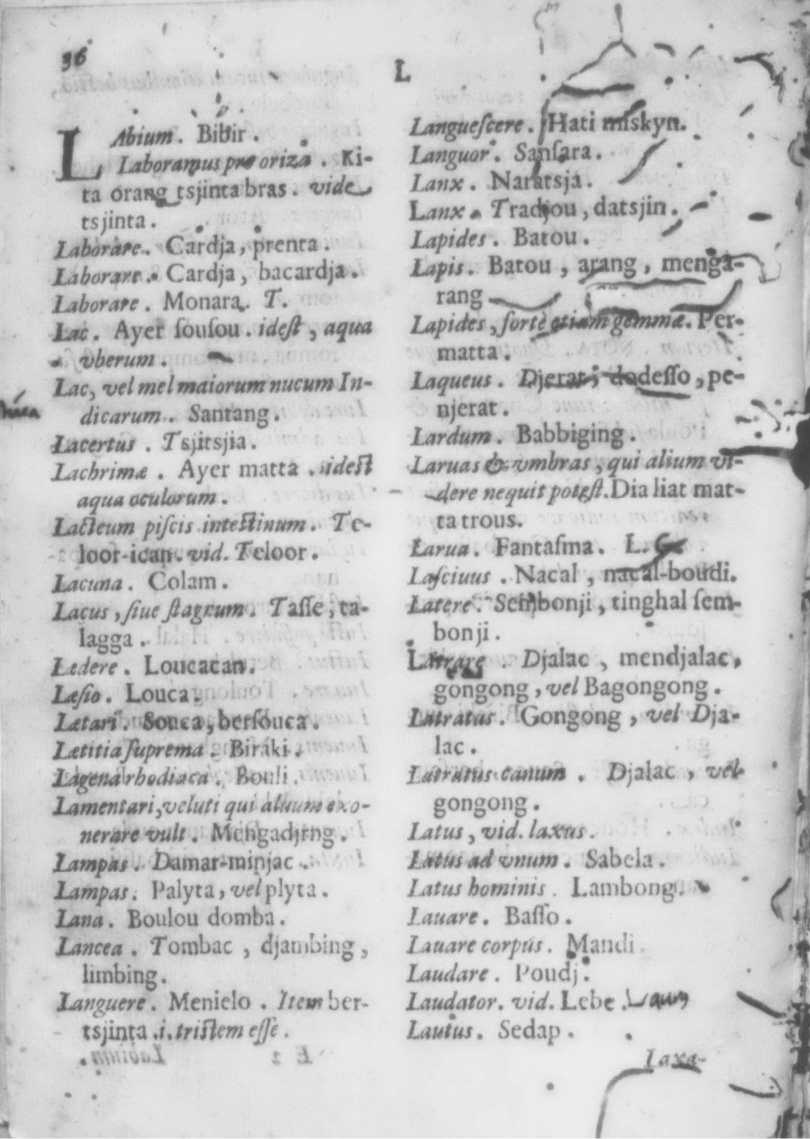 36
L
LAbium. Bibir.
Laboramus pro oriza. Ki-
ta orang tsjinta bras. vide
tsjinta.
Laborare. Cardja, prenta.
Laborare. Cardja, bacardja.
Laborare. Monara. T.
Lac. Ayer ſouſou. ideſt, aqua
vberum.
Lac, vel mel maiorum nucum In-
dicarum. Santang.
Lacertus. Tsjitsjia.
Lachrimæ. Ayer matta. ideſt
aqua oculorum.
Lacteum piſcis inteſtinum. Te-
loor-ican. vid. Teloor.
Lacuna. Colam.
Lacus, ſiue ſtagnum. Taſſe, ta-
lagga.
Ledere. Loucacan.
Læſio. Louca.
Lætari. Souca, berſouca.
Lætitia ſuprema. Biraki.
Lagena rhodiaca. Bouli.
Lamentari, veluti qui aluum exo-
nerare vult. Mengadjeng.
Lampas. Damar-minjac.
Lampas. Palyta, vel plyta.
Lana. Boulou domba.
Lancea. Tombac, djambing,
limbing.
Languere. Menielo. Item ber-
tsjinta .i. triſtem eſſe.
Langueſcere. Hati miskyn.
Languor. Sanſara.
Lanx. Naratsja.
Lanx. Tradjou, datsjin.
Lapides. Batou.
Lapis. Batou, arang, menga-
rang
Lapides, fortè etiam gemmæ. Per-
matta.
Laqueus. Djerat, dadeſſo, pe-
njerat.
Lardum. Babbiging.
Laruas & vmbras, qui alium vi-
dere nequit poteſt. Dia liat mat-
ta trous.
Larua. Fantaſma. L.
Laſciuus. Nacal, nacal-boudi.
Latere. Sembonji, tinghal ſem-
bonji.
Latrare. Djalac, mendjalac,
gongong, vel Bagongong.
Latratus. Gongong, vel Dja-
lac.
Latratus canum. Djalac, vel
gongong.
Latus, vid. laxus.
Latus ad vnum. Sabela.
Latus hominis. Lambong.
Lauare. Baſſo.
Lauare corpus. Mandi.
Laudare. Poudj.
Laudator. vid. Lebe.
Lautus. Sedap.
Laxa-